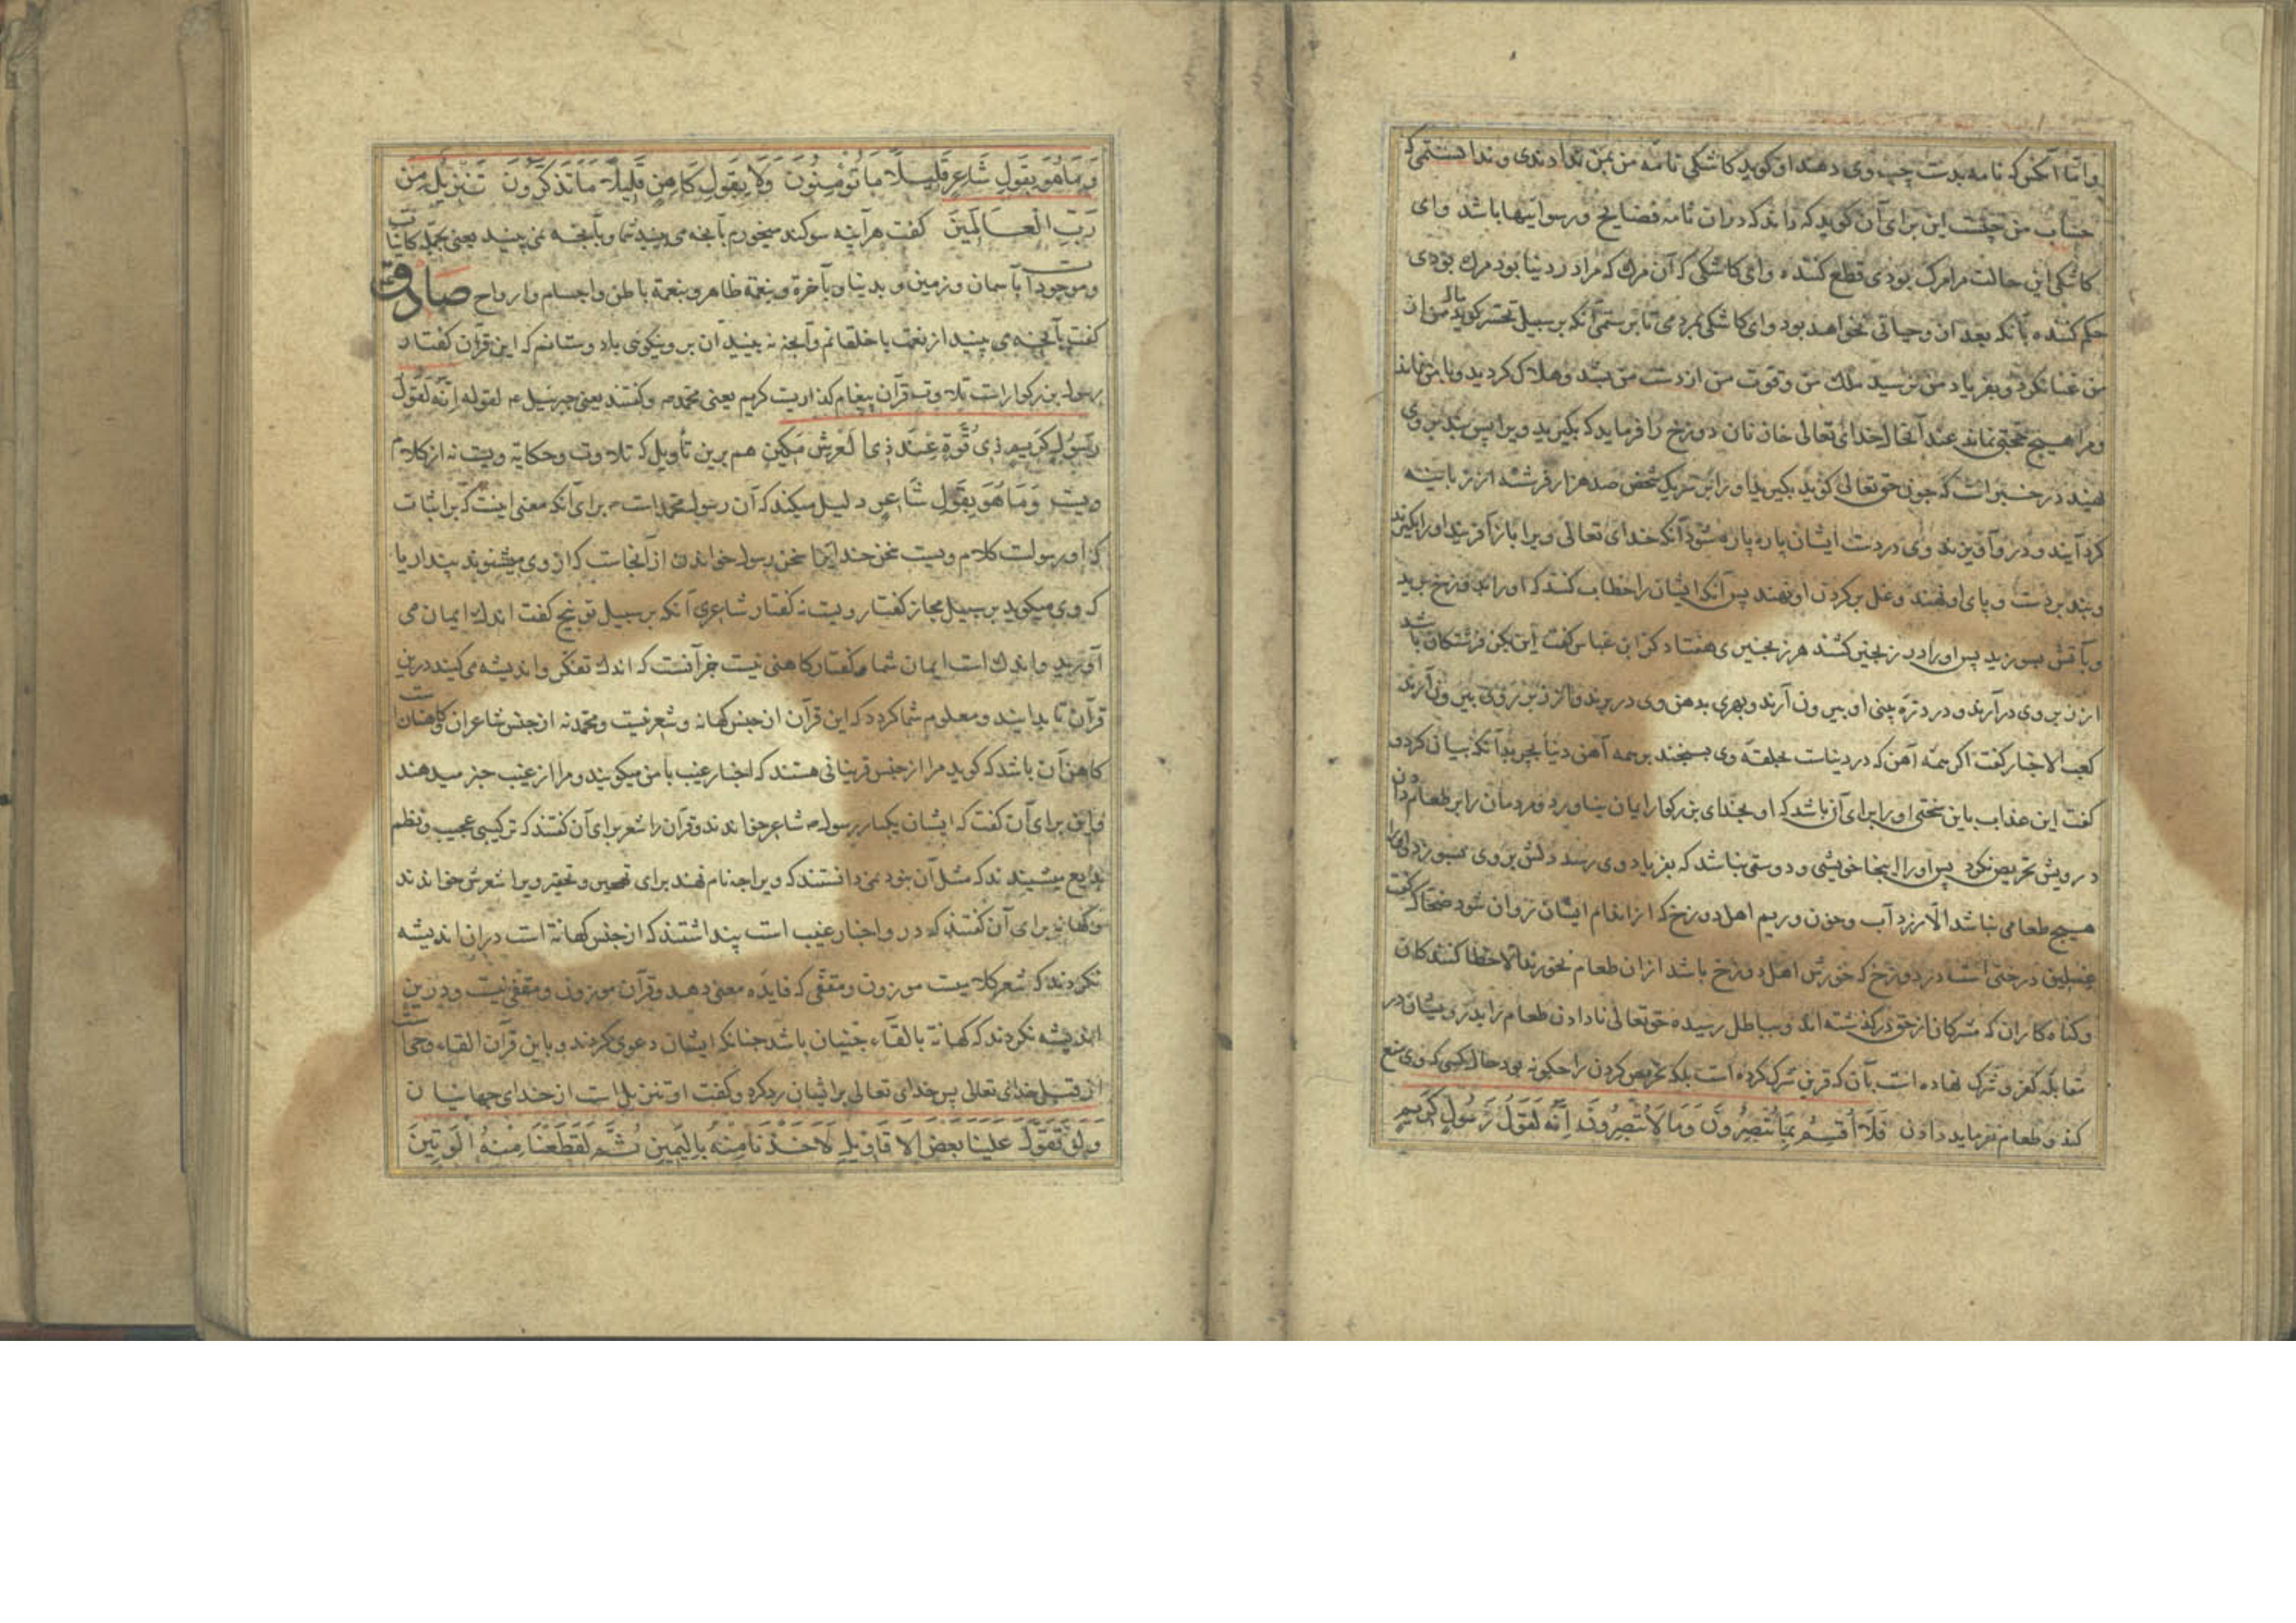 واما آنکس که نامه بدست چپ وی دهند او کوید کاشکی نامه من بمن ندادندی و ندانستمی که
حساب من چیست این برای آن کوید که داند که دران نامه فضایح و رسواییها باشد وای
کاشکی این حالت مرا مرک بودی قطع کننده وای کاشکی که آن مرک که مرا در دنیا بود مرک بودی
حکم کننده بآنکه بعد ان حیاتی نخواهد بود وای کاشکی بمردمی تا برستمی آنکه بر سبیل تحسر کوید مال من از
من غنا نکرد و بفریاد من نرسید ملک من وقوت من از دست من بشد و هلاک کردید و با من نماند
ومرا هیچ حجتی نماند عند آنحال خدای تعالی خازنان دوزخ را فرماید که بکیرید ویرا پس بند بر وی
نهید در خبر است که چون حق تعالی کوید بکیرید اورا بر هر یک شخص صد هزار فرشته از زبانیه
کرد آیند و در وآویزند وی در دست ایشان پاره پاره شود آنکه خدای تعالی ویرا باز آفریند اورا بکیرند
و بند بر دست و پای او نهند و غل بر کردن او نهند پس آنکه ایشان را خطاب کنند که اورا بدوزخ برید
و بآتش بسوزید پس اورا در زنجیر کشند هر زنجیری هفتاد کز ابن عباس کفت این بکز فرشتکان باشد
از زیر وی در آرند و در دزه بینی او بیرون آرند و بهری بدهن وی در برند و از زیر وی بیرون آرند
کعب الاحبار کفت اکر همه آهن که در دنیاست بحلقه وی بسنجند بر همه آهن دنیا بچربد آنکه بیان کرد و
کفت این عذاب باین سختی اورا برای آن باشد که او بخدای بزرکوار ایمان نیاورد و مردمان را بر طعام دادن
درویش تحریض نکرد پس اورا اینجا خویشی و دوستی نباشد که بفریاد وی رسد دلش بر وی بسوزد و اورا
هیچ طعامی نباشد الا زرد آب و خون و ریم اهل دوزخ که از اندام ایشان روان شود ضحاک کفت
غسلین درختی است در دوزخ که خورش اهل دوزخ باشد ازان طعام نخورند الا خطا کنندکان
وکناه کاران که مشرکانند از حق در کذشته اند و بباطل رسیده حق تعالی نا دادن طعام را بدرویشان در
مقابله کفر و شرک نهاده است بآن که قرین شرک کرده است بلکه تحریض کردن را چکونه بود حال کسی که وی منع
کند و طعام نفرماید دادن فَلَا أُقْسِمُ بِمَا تُبْصِرُونَ وَمَا لَا تُبْصِرُونَ إِنَّهُ لَقَوْلُ رَسُولٍ كَرِيمٍ
وَمَا هُوَ بِقَوْلِ شَاعِرٍ قَلِيلًا مَا تُؤْمِنُونَ وَلَا بِقَوْلِ كَاهِنٍ قَلِيلًا مَا تَذَكَّرُونَ تَنْزِيلٌ مِنْ
رَبِّ الْعَالَمِينَ کفت هر آینه سوکند میخورم بآنچه می بینید شما و بآنچه نمی بینید یعنی بجمله کاینات
و موجودات بآسمان و زمین و بدنیا و بآخرة و بنعمة ظاهر و بنعمة باطن و اجسام و ارواح صادق
کفت بآنچه می بینید از نعمت با خلقانم و آنچه نه بینید آن بر و نیکوئی با دوستانم که این قرآن کفتار
رسول بزرکوار است تلاوت قرآن پیغام کذاریست کریم یعنی محمد م و کفتند یعنی جبرئیل ع لقوله إِنَّهُ لَقَوْلُ
رَسُولٍ كَرِيمٍ ذِي قُوَّةٍ عِنْدَ ذِي الْعَرْشِ مَكِينٍ هم برین تأویل که تلاوت و حکایة ویست نه از کلام
ویست وَمَا هُوَ بِقَوْلِ شَاعِرٍ دلیل میکند که آن رسول محمد است م برای آنکه معنی اینست که بر اثبات
که او رسولست کلام ویست سخن خداست سخن رسول خواندن از آنجاست که از وی میشنوند پندار یا
که وی میکوید بر سبیل مجاز کفتار ویست نه کفتار شاعری آنکه بر سبیل توبیخ کفت اندک ایمان می
آورید و اندک است ایمان شما و کفتار کاهنی نیست جز آنست که اندک تفکر و اندیشه می کنید درین
قرآن تا بدانید و معلوم شما کردد که این قرآن از جنس کهانه و شعر نیست و محمد نه از جنس شاعران و کاهنانست
کاهن آن باشد که کوید مرا از جنس قرینانی هستند که اخبار غیب با من میکویند و مرا از غیب خبر میدهند
و این برای آن کفت که ایشان یکبار رسول م شاعر خواندند و قرآن را شعر برای آن کفتند که ترکیبی عجیب و نظم
بدیع میشنیدند که مثل آن بنود نمیدانستند که ویرا چه نام نهند برای تهجین و تحقیر ویرا شعرش خواندند
و کهانه برای آن کفتند که در و اخبار غیب است پنداشتند که از جنس کهانة است دران اندیشه
نکردند که شعر کلامیست موزون و مقفی که فایده معنی دهد و قرآن موزون و مقفی نیست و درین
اندیشه نکردند که کهانة بالقاء جنیان باشد چنانکه ایشان دعوی کردند و باین قرآن القاء وحیست
از قبل خدای تعالی پس خدای تعالی بر ایشان رد کرد و کفت او تنزیل است از خدای جهانیان
وَلَوْ تَقَوَّلَ عَلَيْنَا بَعْضَ الْأَقَاوِيلِ لَأَخَذْنَا مِنْهُ بِالْيَمِينِ ثُمَّ لَقَطَعْنَا مِنْهُ الْوَتِينَ